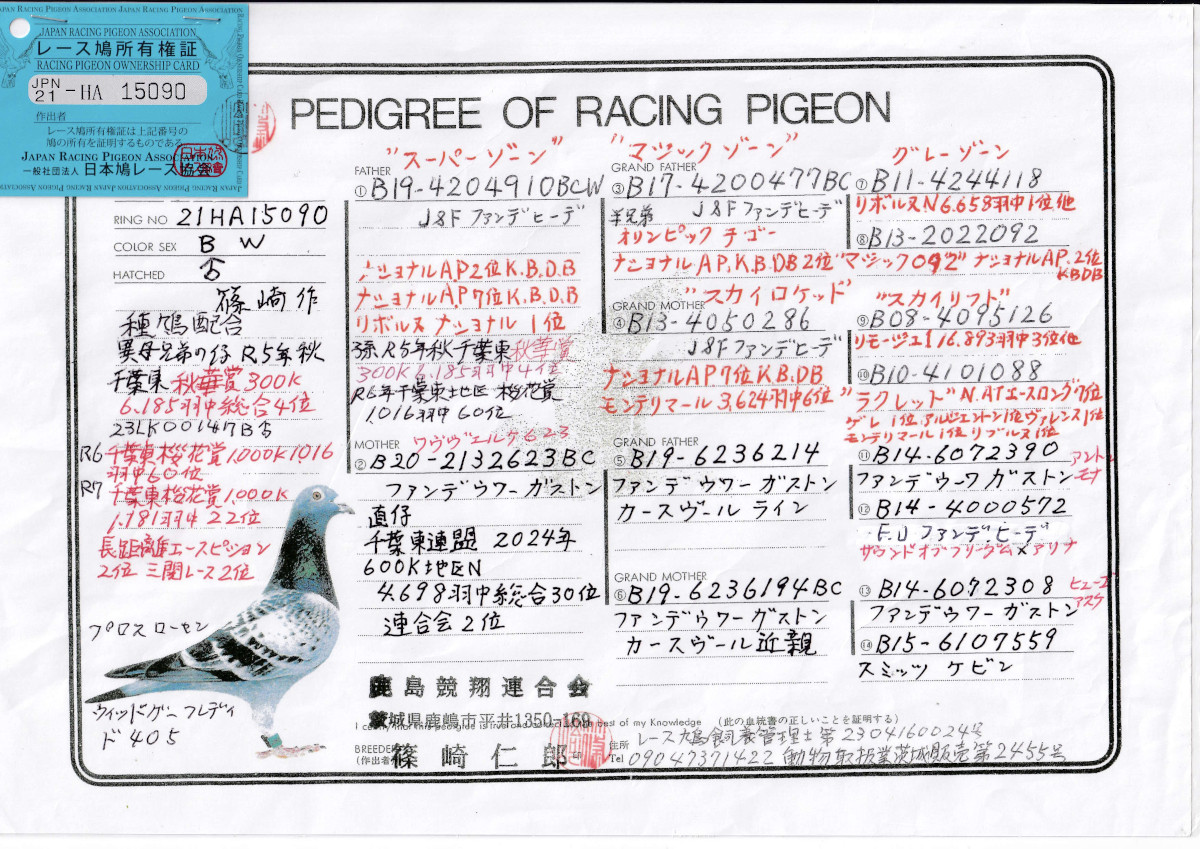 JAPAN RACING PIGEON ASSOCIATION JAPAN RACING PIGEON ASSOCIATION
JAPAN RACING PIGEON ASSOCIATION
レース鳩所有権証
RACING PIGEON OWNERSHIP CARD
JPN 21 -HA 15090
作出者
レース鳩所有権証は上記番号の
鳩の所有を証明するものである
JAPAN RACING PIGEON ASSOCIATION
一般社団法人 日本鳩レース協会
PEDIGREE OF RACING PIGEON
RING NO 21HA15090
COLOR SEX B W
HATCHED ♂
篠崎作
種鳩配合
異母兄弟の仔 R5年秋
千葉東 秋華賞300K
6.185羽中総合4位
23LK00147B♂
R6千葉東桜花賞1,000K1,016
羽中60位
R7千葉東桜花賞1,000K
1,181羽中22位
長距離エースピジョン
2位 三関レース2位
プロスローセン
ウィッドグー フレディ
ド405
"スーパーゾーン"
FATHER
①B19-4204910BCW
J&F ファンデヒーデ
ナショナルAP2位K.B.D.B
ナショナルAP7位K.B.D.B
リボルヌ ナショナル 1位
孫R5年秋千葉東秋華賞
300K 6.185羽中4位
R6年千葉東土地区 桜花賞
1,016羽中60位
MOTHER
②B20-2132623BC
ファンデウワー ガストン
直仔
千葉東連盟 2024年
600K地区N
4.698羽中総合30位
連合会2位
"マジックゾーン"
GRAND FATHER
③B17-4200477BC
半兄弟 J&F ファンデヒーデ
オリンピック チゴー
ナショナルAP.K.B.DB2位
"スカイロケッド"
GRAND MOTHER
④B13-4050286
J&Fファンデヒーデ
ナショナルAP7位K.B.DB
モンテリマール3,624羽中6位
GRAND FATHER
⑤B19-6236214
ファンデウワー ガストン
カースヴール ライン
GRAND MOTHER
⑥B19-6236194BC
ファンデウワーガストン
カースヴール近親
グレーゾーン
⑦B11-4244118
リボルヌN6.658羽中1位他
⑧B13-2022092
"マジック092" ナショナルAP.2位
KBDB
"スカイリフト"
⑨B08-4095126
リモージュI16.893羽中3位他
⑩B10-4101088
"ラクレット"N.ATエースロング7位
ゲレ1位アルジェントン1位ヴァレンス1位
モンテリマール1位リブルヌ1位
⑪B14-6072390 アントン
モナ
ファンデウーワ ガストン
⑫B14-4000572
F.J ファンデ.ヒーデ
サウンドオブフリーダム×アリナ
⑬B14-6072308
ファンデウワー ガストン
⑭B15-6107559
スミッツ ケビン
鹿島競翔連合会
茨城県鹿嶋市平井1350-169
best of my Knowledge (此の血統書の正しいことを証明する)
BREEDER
(作出者) 篠崎仁郎
住所 レース鳩飼養管理士第2304160024号
Tel 09047371422 動物取扱業茨城販売第2455号